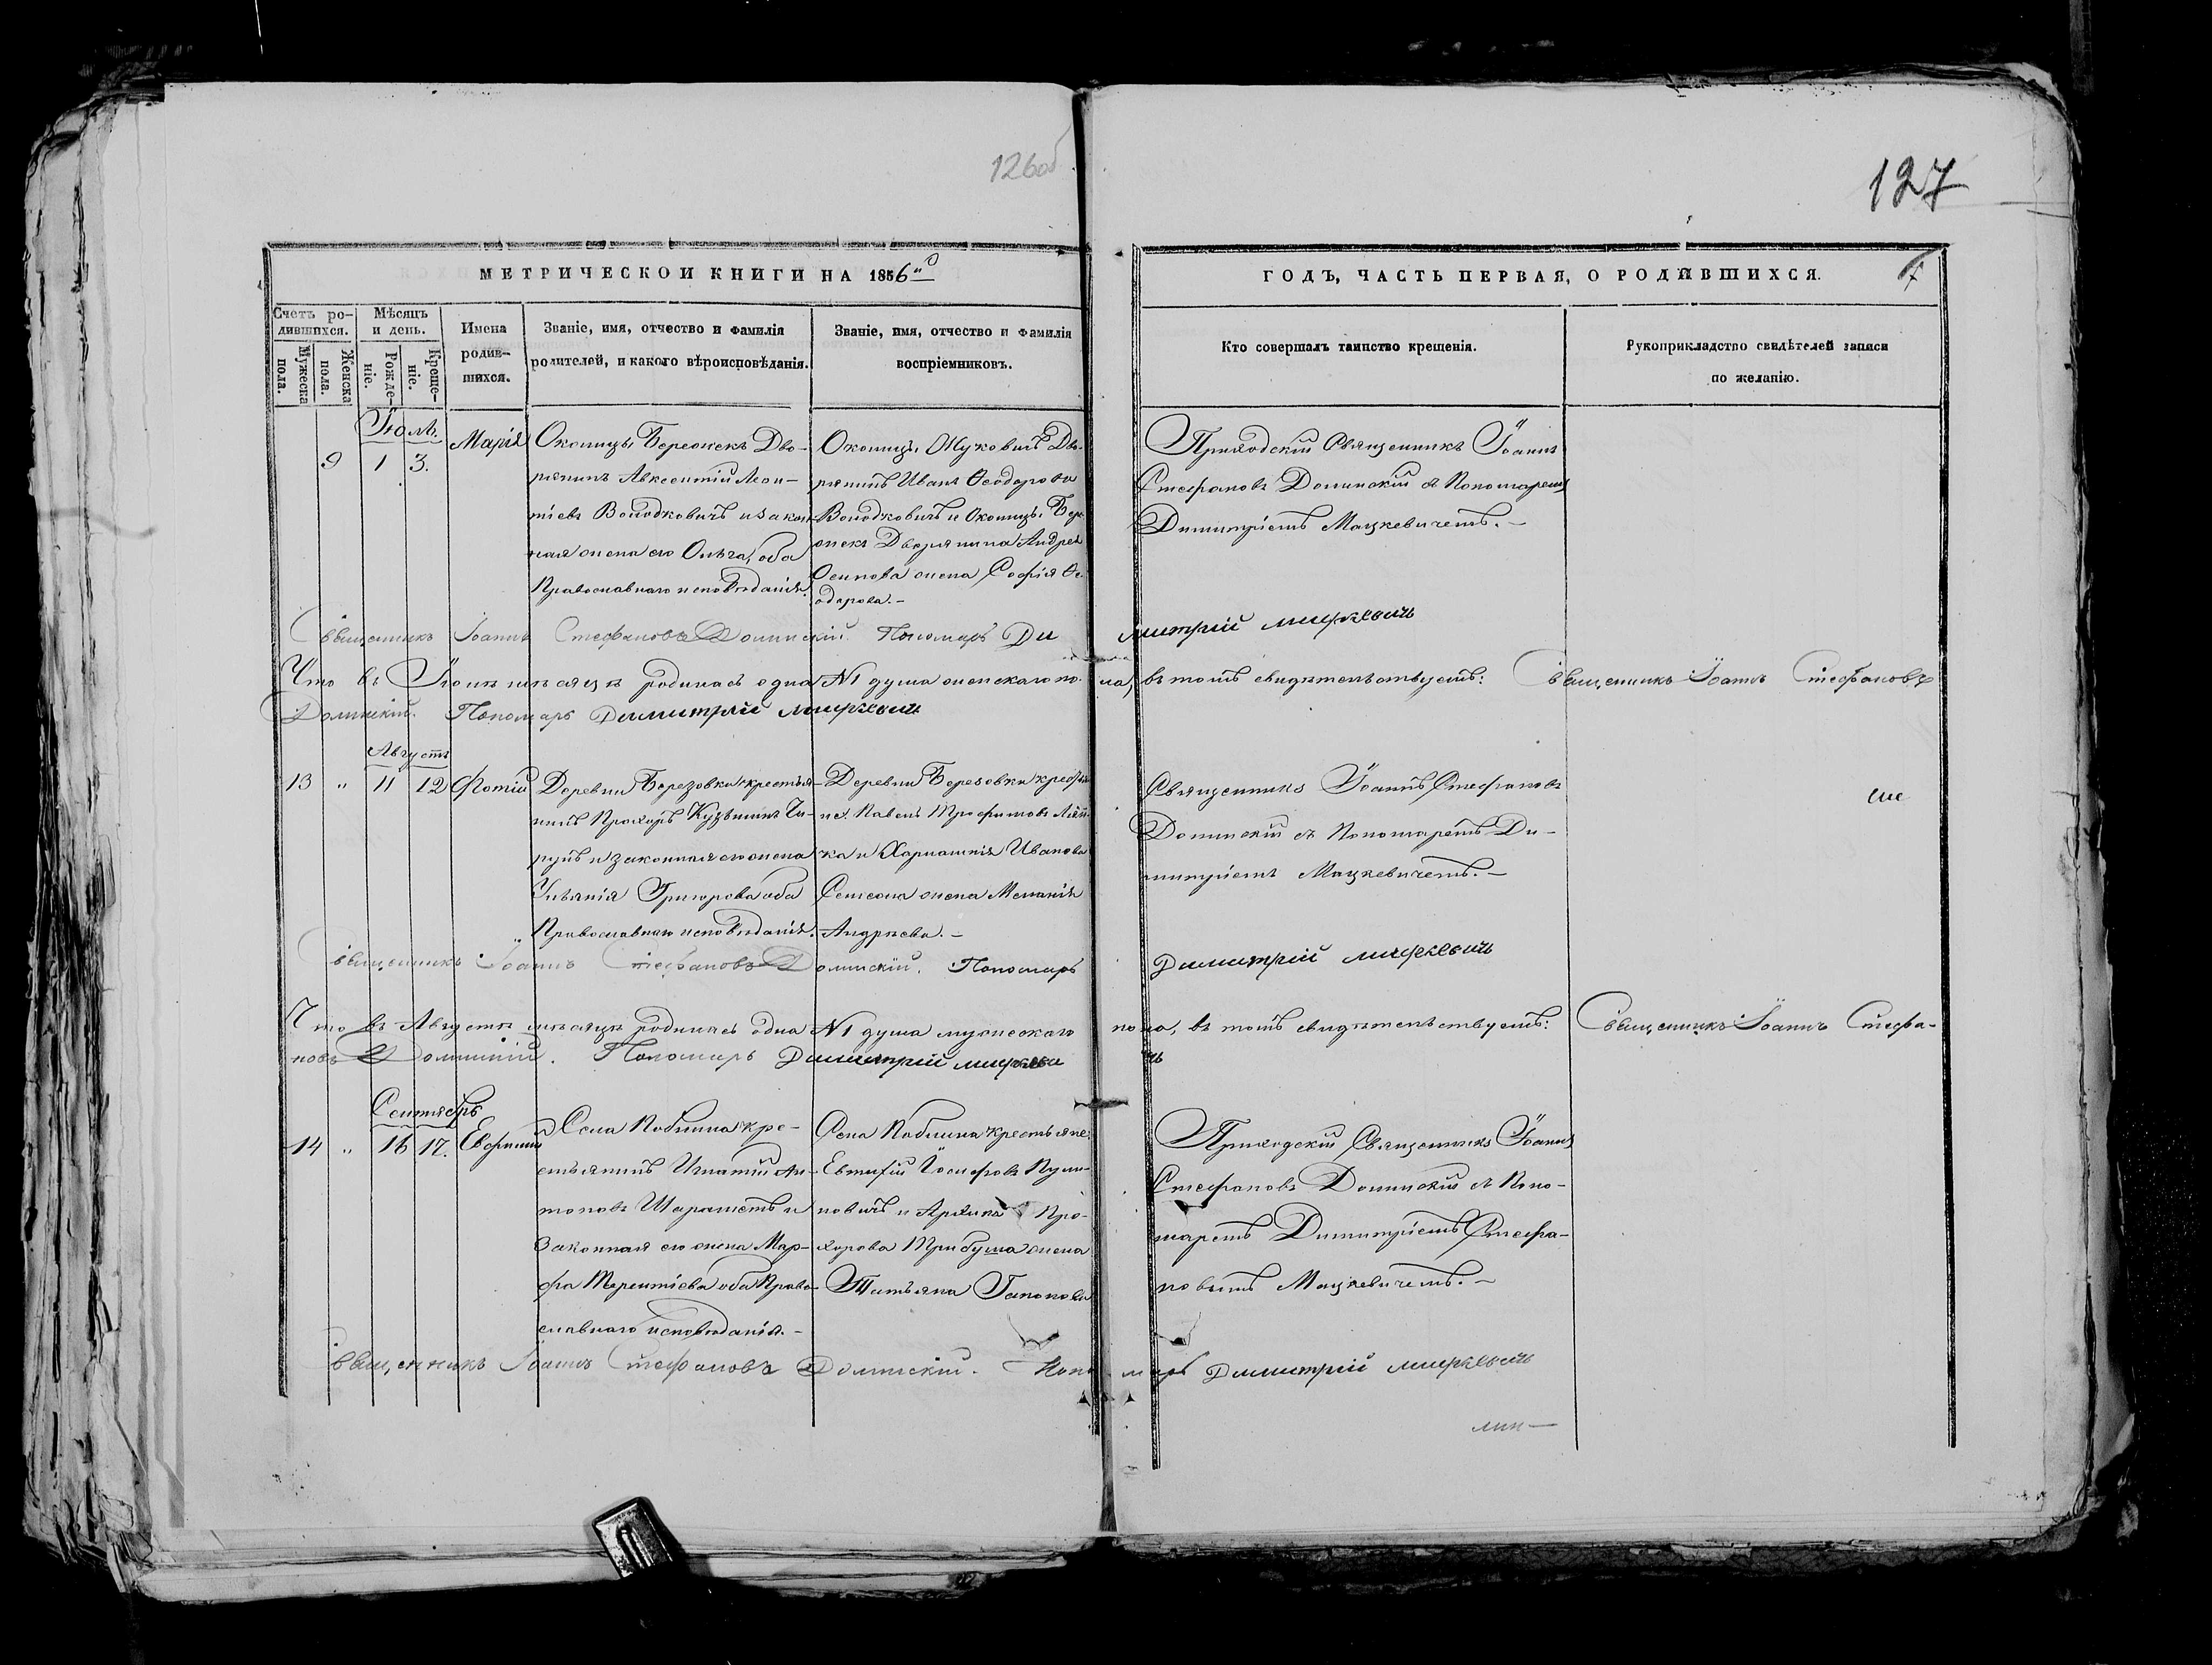 126об
127
МЕТРИЧЕСКОЙ КНИГИ НА 1856й
ГОДЪ, ЧАСТЬ ПЕРВАЯ, О РОДИВШИХСЯ.
Счетъ ро-
дившихся.
Мѣсяцъ
и день.
Имена
родив-
шихся.
Званіе, имя, отчество и фамилія
родителей, и какого вѣроисповѣданія.
Званіе, имя, отчество и фамилія
воспріемниковъ.
Кто совершалъ таинство крещенія.
Рукоприкладство свидѣтелей записи
по желанію.
Мужеска
пола.
Женска
пола.
Рожде-
ніе.
Креще-
ніе.
Іюль.
9 1 3. Марія
Околицы Бережекъ Дво-
рянинъ Авксентій Леон-
тіевъ Володковичъ и закон-
ная жена его Ольга, оба
Православнаго исповѣданія.
Околицы Жуковичъ Дво-
рянинъ Иванъ Ѳеодоровъ
Володковичъ и Околицы Бере-
жекъ Дворянина Андрея
Осипова жена Софія Ѳе-
одорова.-
Приходскій Священникъ Іоаннъ
Стефановъ Долинскій съ Пономаремъ
Димитріемъ Мацкевичемъ.-
Священникъ Іоаннъ Стефановъ Долинскій. Пономарь Димитрій Мацкевичъ
Что въ Іюлѣ мѣсяцѣ родилась одна №1 душа женскаго пола, въ томъ свидѣтельствуемъ: Священникъ Іоаннъ Стефановъ
Долинскій. Пономарь Димитрій Мацкевичъ
Августъ
13 " 11 12 Фотій
Деревни Березовки крестья-
нинъ Прохоръ Кузьминъ
и законная его жена
Григорова оба
Православнаго исповѣданія.
Деревни Березовки крестья-
Павелъ Трофимовъ
и Иванова
жена Меланія
Андрѣева.-
Священникъ Іоаннъ Стефановъ
Долинскій съ Пономаремъ Ди-
митріемъ Мацкевичемъ.-
Священникъ Іоаннъ Стефановъ Долинскій. Пономарь Димитрій Мацкевичъ
Что въ Августѣ мѣсяцѣ родилась одна №1 душа мужескаго пола, въ томъ свидѣтельствуемъ: Священникъ Іоаннъ Стефа-
новъ Долинскій. Пономарь Димитрій Мацкевичъ
Сентябрь
14 " 16 17.
Села кре-
стьянинъ Игнатій Ан-
тоновъ и
Законная его жена Мар-
фа Терентіева оба Право-
славнаго исповѣданія.-
Села крестьяне:
Евтихій Іосифовъ
и Про-
хорова жена
Татьяна
Приходскій Священникъ Іоаннъ
Стефановъ Долинскій съ Поно-
маремъ Димитріемъ Стефа-
новымъ Мацкевичемъ.-
Священникъ Іоаннъ Стефановъ Долинскій. Пономарь Димитрій Мацкевичъ